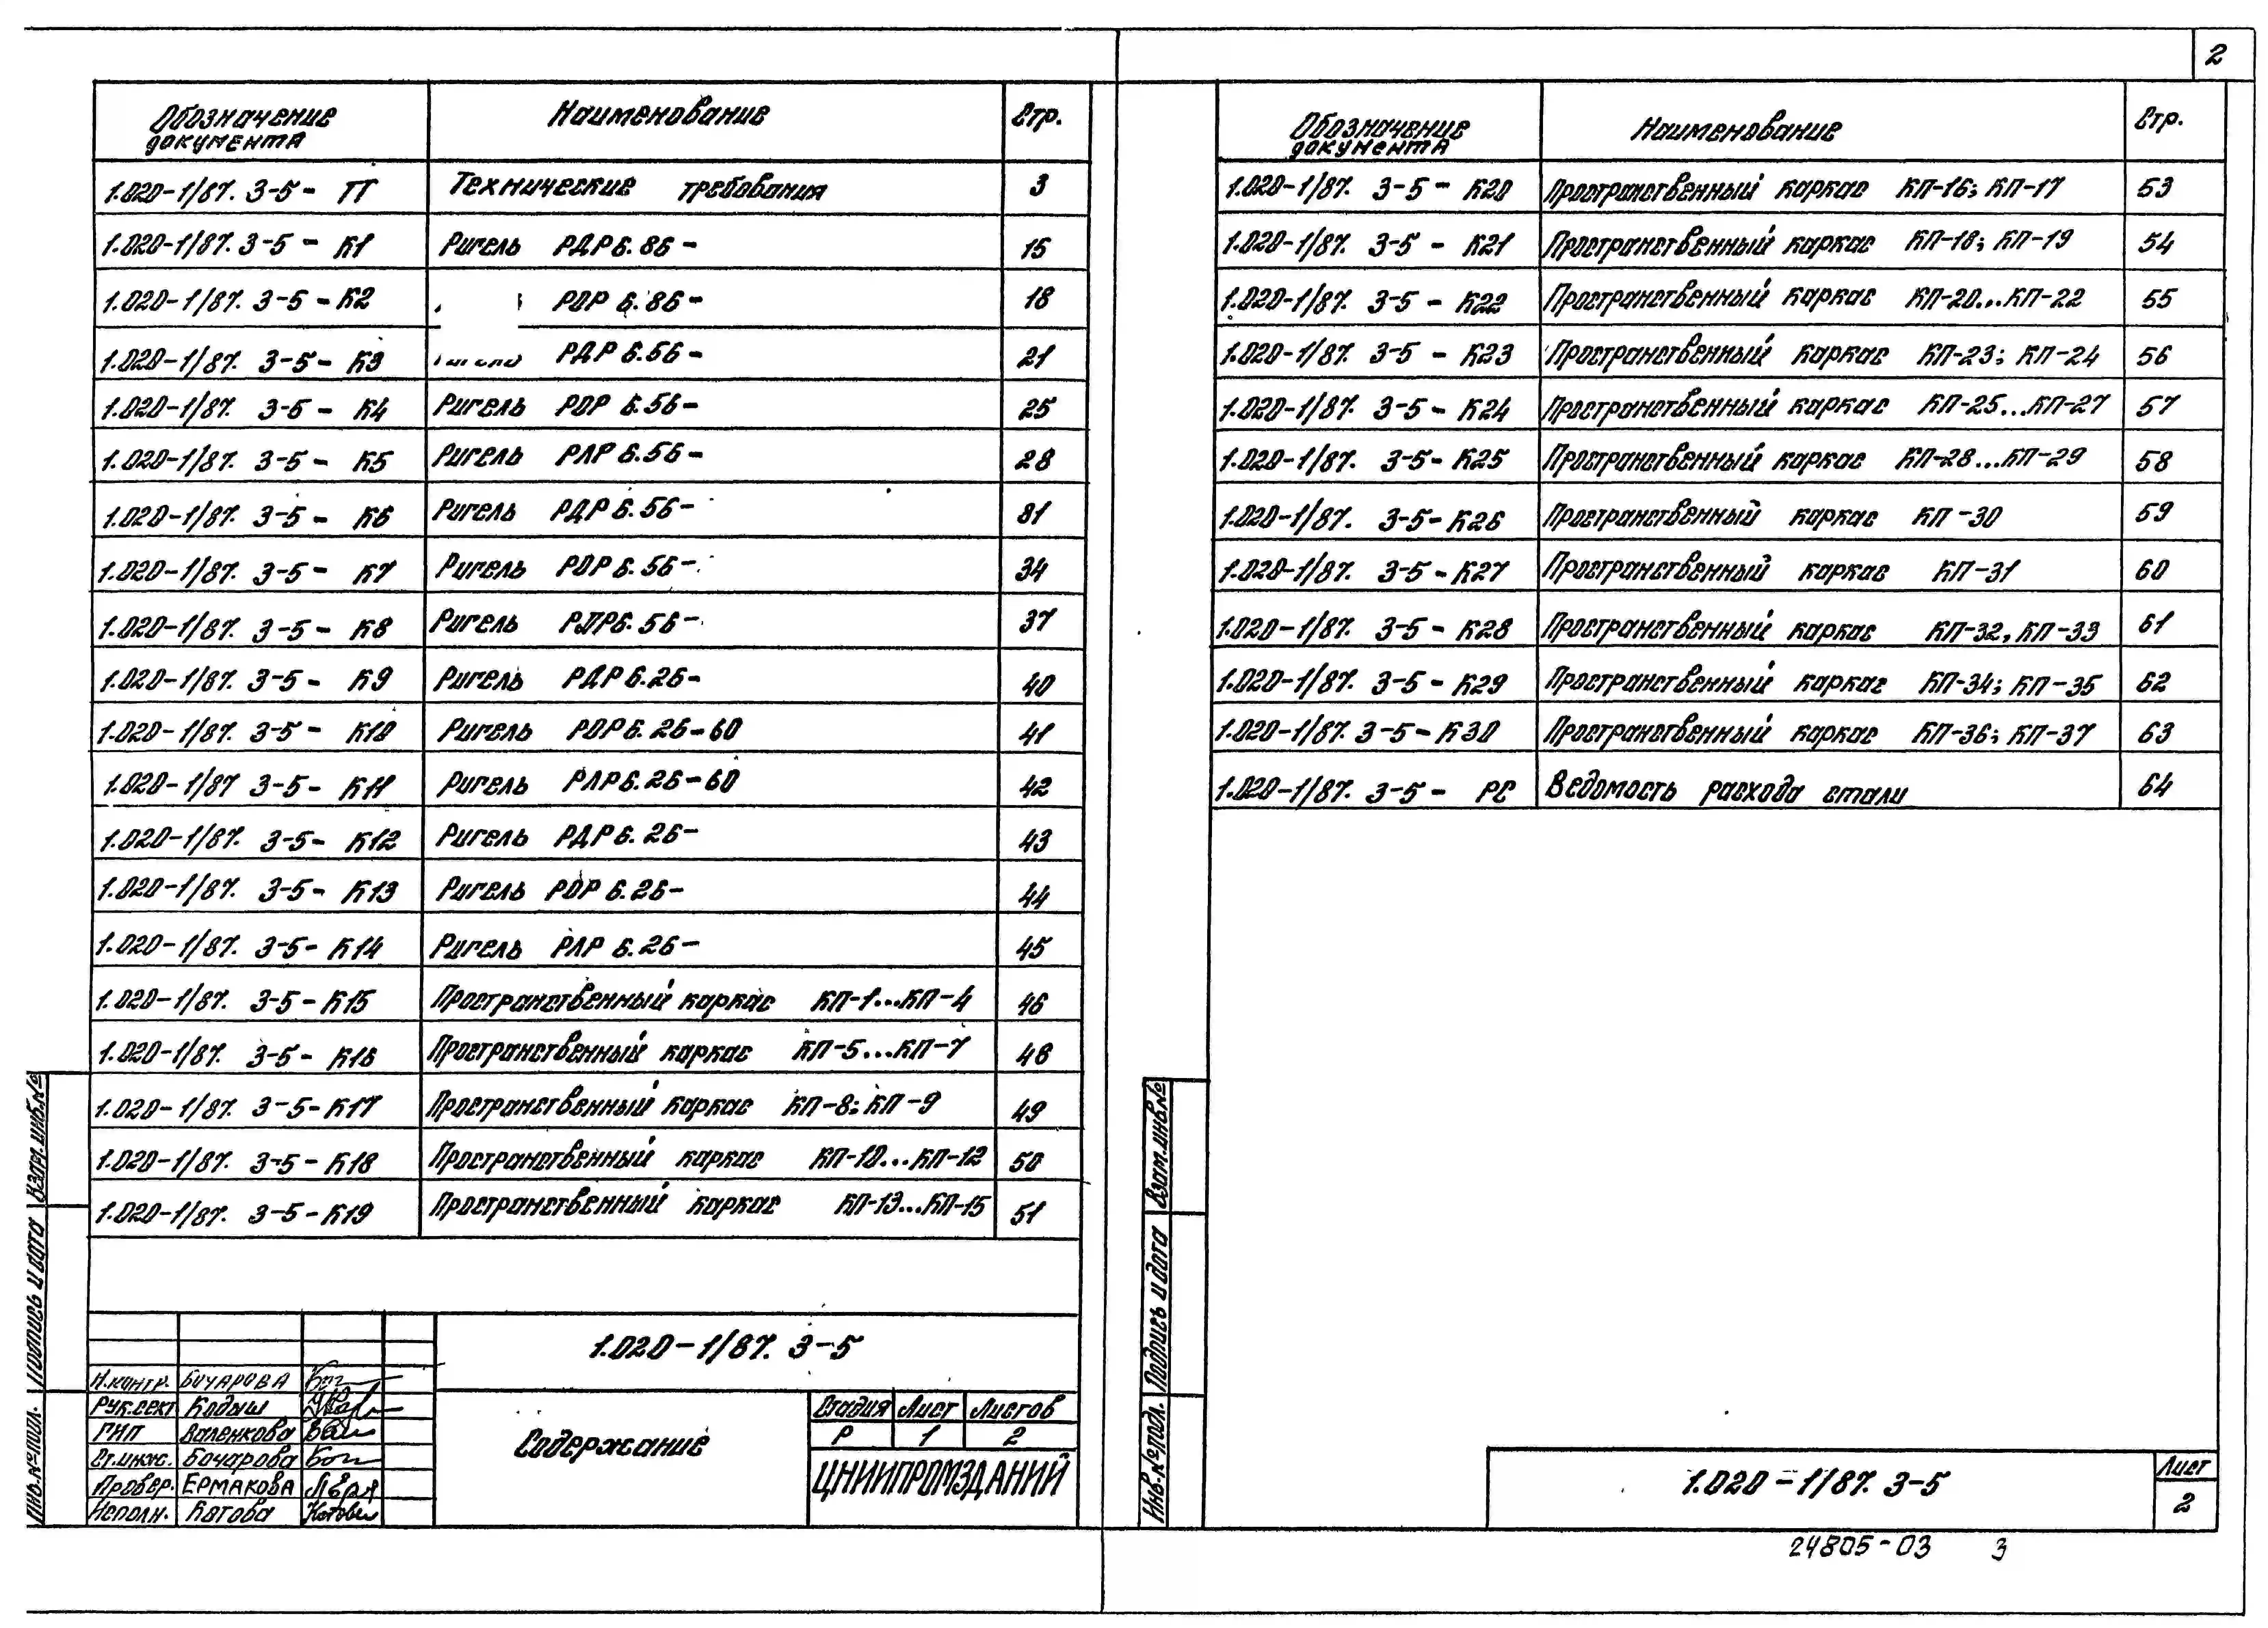 2
Обозначение документа Наименование Стр.
1.020-1/87. 3-5 - ТТ Технические требования 3
1.020-1/87. 3-5 - К1 Ригель РДР 6.86- 15
1.020-1/87. 3-5 - К2 РОР 6.86- 18
1.020-1/87. 3-5 - К3 РДР 6.56- 21
1.020-1/87. 3-5 - К4 Ригель РОР 6.56- 25
1.020-1/87. 3-5 - К5 Ригель РЛР 6.56- 28
1.020-1/87. 3-5 - К6 Ригель РДР 6.56- 31
1.020-1/87. 3-5 - К7 Ригель РОР 6.56- 34
1.020-1/87. 3-5 - К8 Ригель РЛР 6.56- 37
1.020-1/87. 3-5 - К9 Ригель РДР 6.26- 40
1.020-1/87. 3-5 - К10 Ригель РОР 6.26-60 41
1.020-1/87 3-5- К11 Ригель РЛР 6.26-60 42
1.020-1/87. 3-5- К12 Ригель РДР 6.26- 43
1.020-1/87. 3-5- К13 Ригель РОР 6.26- 44
1.020-1/87. 3-5- К14 Ригель РЛР 6.26- 45
1.020-1/87. 3-5-К15 Пространственный каркас КП-1...КП-4 46
1.020-1/87. 3-5- К16 Пространственный каркас КП-5...КП-7 48
1.020-1/87. 3-5-К17 Пространственный каркас КП-8; КП-9 49
1.020-1/87. 3-5-К18 Пространственный каркас КП-10...КП-12 50
1.020-1/87. 3-5-К19 Пространственный каркас КП-13...КП-15 51
1.020-1/87. 3-5
Содержание
Стадия Лист Листов
Р 1 2
ЦНИИПРОМЗДАНИЙ
Н.контр. Бочарова
Рук.сект Кодыш
ГИП Валенкова
Ст.инж. Бочарова
Провер. Ермакова
Исполн. Котова
Взам.инв.№
Подпись и дата
Инв.№подл.
Обозначение документа Наименование Стр.
1.020-1/87. 3-5 - К20 Пространственный каркас КП-16; КП-17 53
1.020-1/87. 3-5 - К21 Пространственный каркас КП-18; КП-19 54
1.020-1/87. 3-5 - К22 Пространственный каркас КП-20...КП-22 55
1.020-1/87. 3-5 - К23 Пространственный каркас КП-23; КП-24 56
1.020-1/87. 3-5 - К24 Пространственный каркас КП-25...КП-27 57
1.020-1/87. 3-5- К25 Пространственный каркас КП-28...КП-29 58
1.020-1/87. 3-5- К26 Пространственный каркас КП-30 59
1.020-1/87. 3-5 - К27 Пространственный каркас КП-31 60
1.020-1/87. 3-5 - К28 Пространственный каркас КП-32, КП-33 61
1.020-1/87. 3-5 - К29 Пространственный каркас КП-34; КП-35 62
1.020-1/87. 3-5-К30 Пространственный каркас КП-36; КП-37 63
1.020-1/87. 3-5- РС Ведомость расхода стали 64
Взам.инв№
Подпись и дата
Инв.№подл.
1.020-1/87. 3-5
Лист
2
24805-03 3